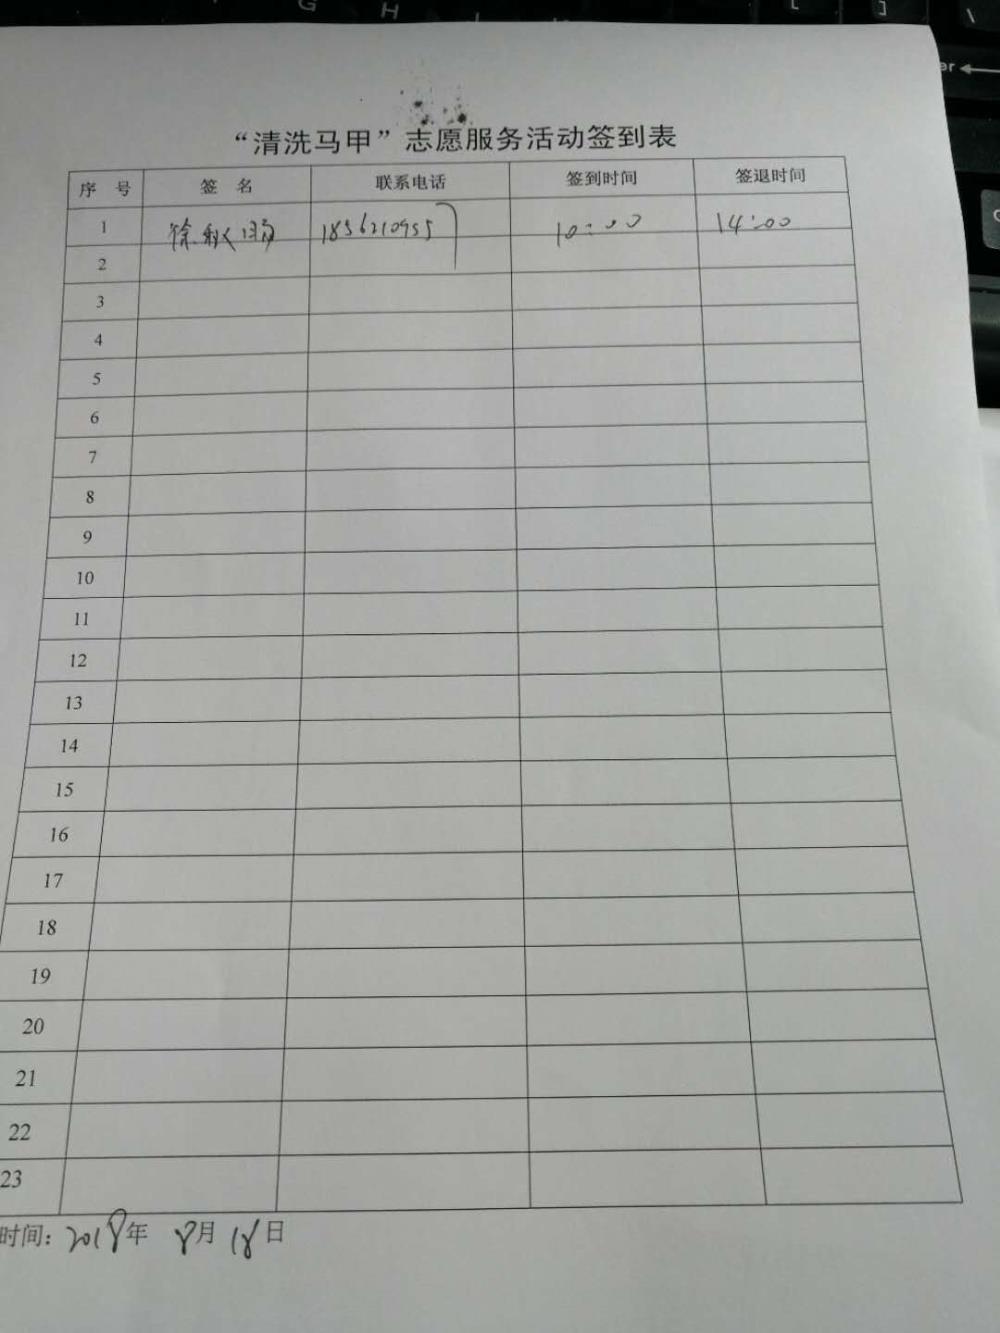 “清洗马甲”志愿服务活动签到表
序 号 签 名 联系电话 签到时间 签退时间
1 徐 18562109557 10:00 14:00
2
3
4
5
6
7
8
9
10
11
12
13
14
15
16
17
18
19
20
21
22
23
时间：2018年 8月 18日